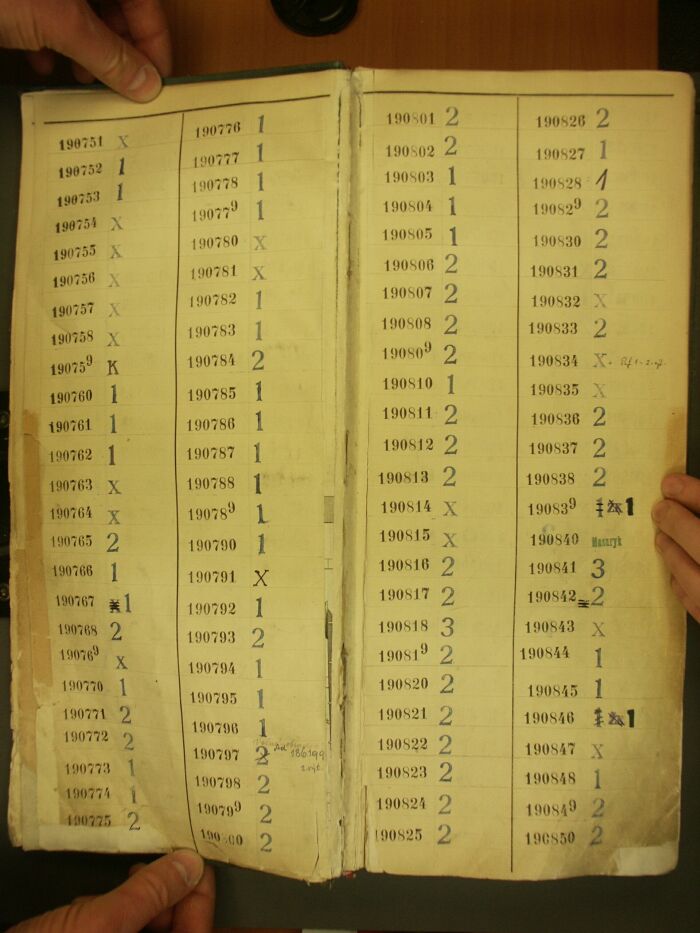 190751 x
190752 1
190753 1
190754 x
190755 x
190756 x
190757 x
190758 x
190759 K
190760 1
190761 1
190762 1
190763 x
190764 x
190765 2
190766 1
190767 1
190768 2
190769 x
190770 1
190771 2
190772 2
190773 1
190774 1
190775 2
190776 1
190777 1
190778 1
190779 1
190780 x
190781 x
190782 1
190783 1
190784 2
190785 1
190786 1
190787 1
190788 1
190789 1
190790 1
190791 X
190792 1
190793 2
190794 1
190795 1
190796 1
190797 2 186199
190798 2
190799 2
190800 2
190801 2
190802 2
190803 1
190804 1
190805 1
190806 2
190807 2
190808 2
190809 2
190810 1
190811 2
190812 2
190813 2
190814 x
190815 x
190816 2
190817 2
190818 3
190819 2
190820 2
190821 2
190822 2
190823 2
190824 2
190825 2
190826 2
190827 1
190828 1
190829 2
190830 2
190831 2
190832 x
190833 2
190834 x
190835 x
190836 2
190837 2
190838 2
190839 1 2x 1
190840 Masaryk
190841 3
190842 2
190843 x
190844 1
190845 1
190846 1 2x 1
190847 x
190848 1
190849 2
190850 2